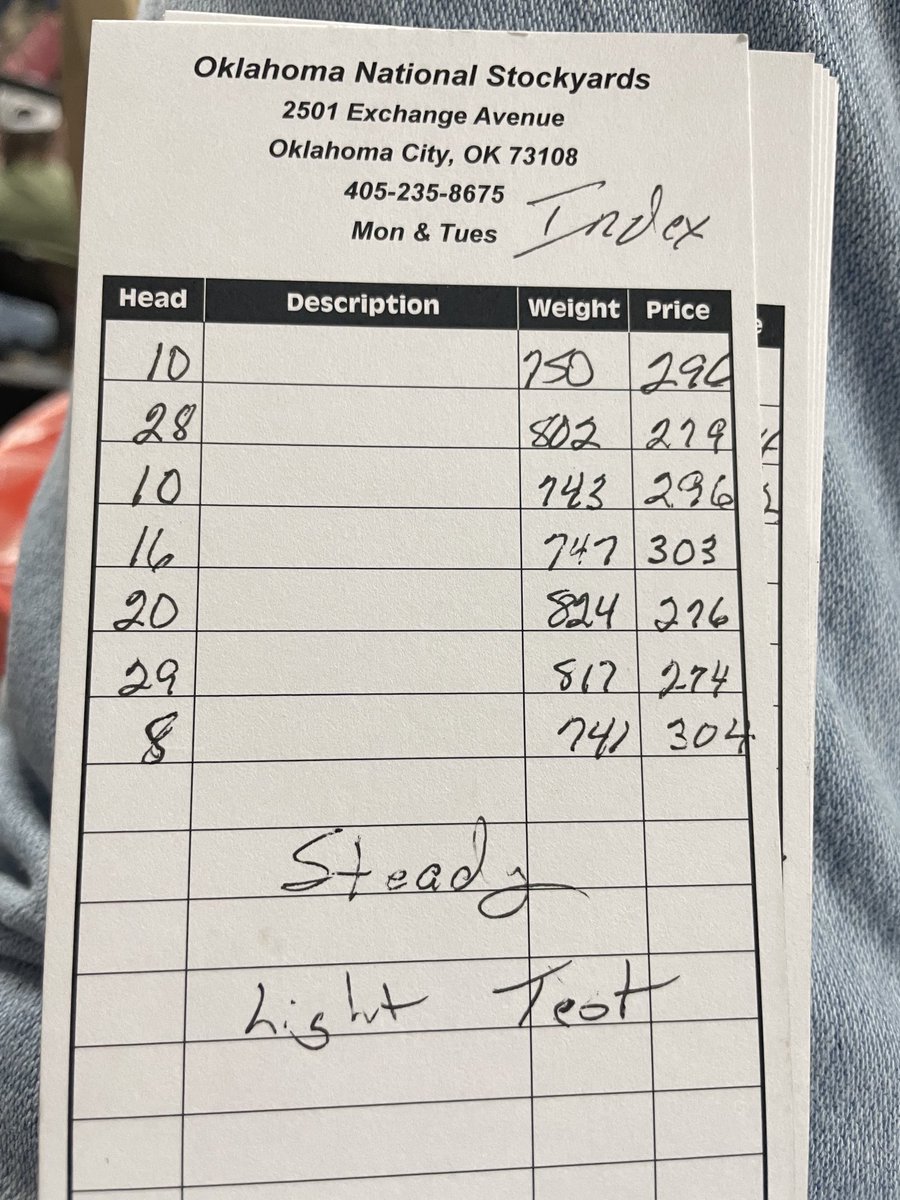 Oklahoma National Stockyards
2501 Exchange Avenue
Oklahoma City, OK 73108
405-235-8675
Mon & Tues Index
Head Description Weight Price
10 750 290
28 802 279
10 743 296
16 747 303
20 824 276
29 817 274
8 741 304
Steady
Light Test